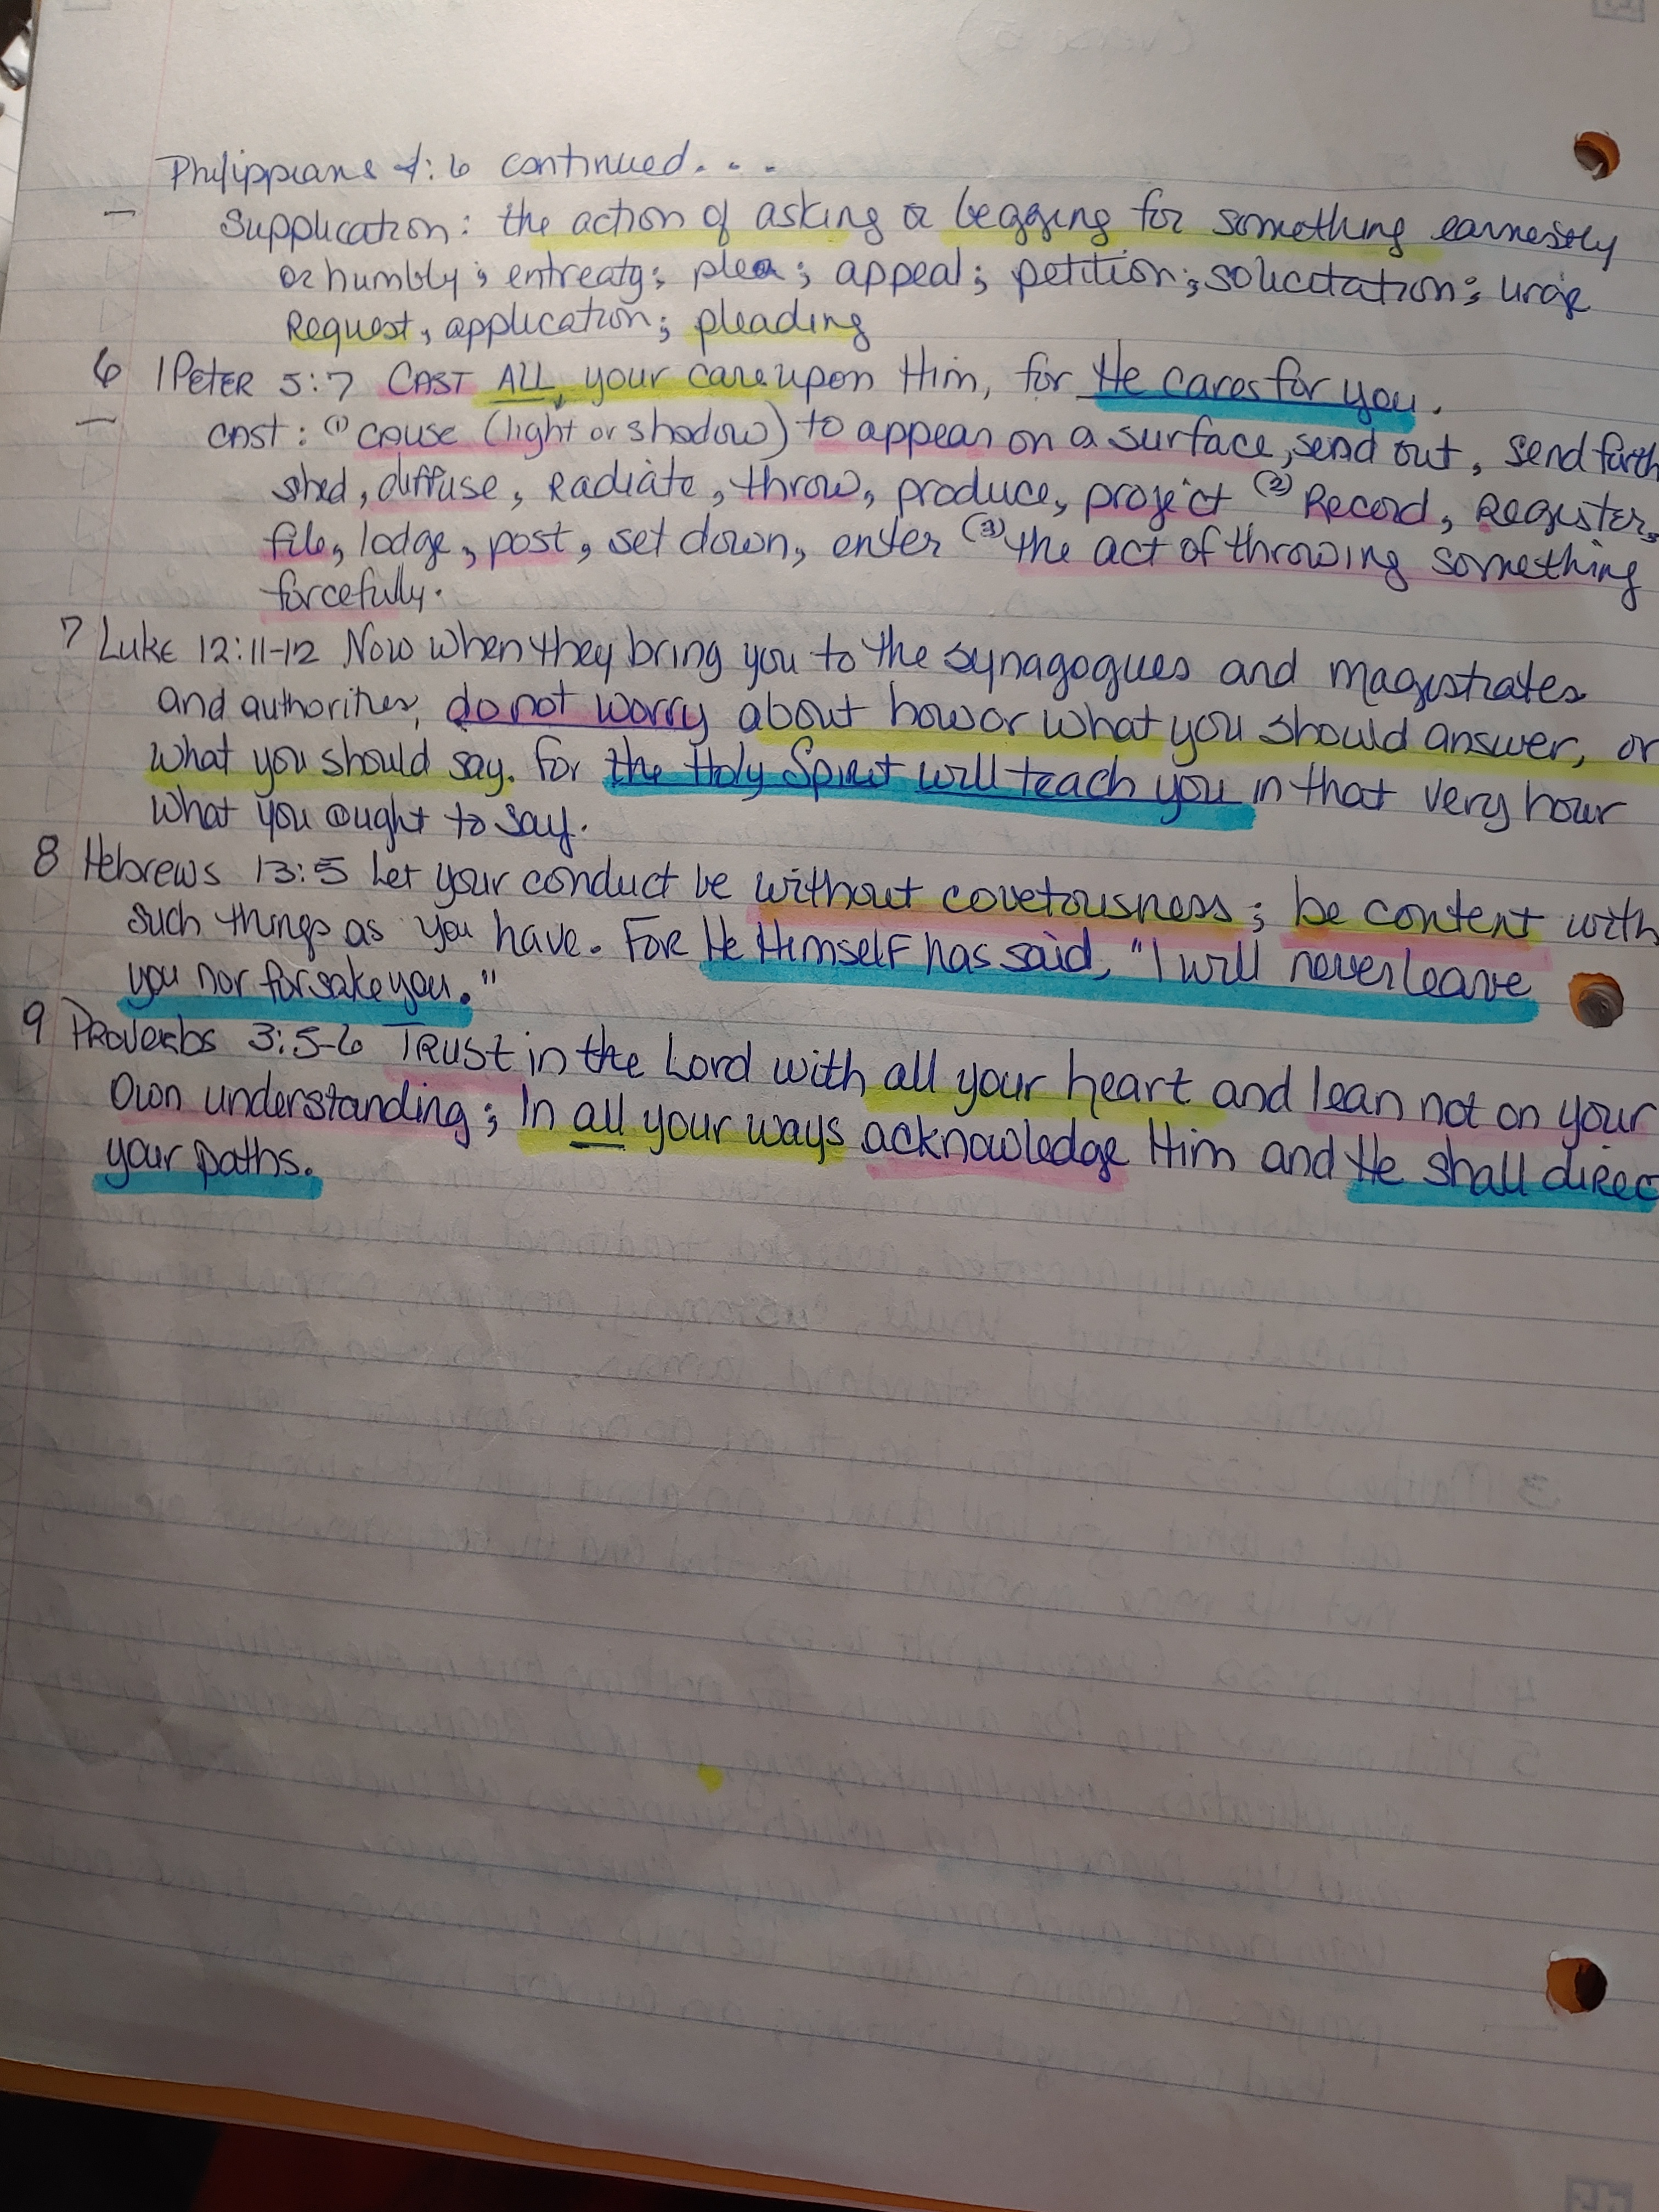 Philippians 4:6 continued...
— Supplication: the action of asking or begging for something earnestly
or humbly; entreaty; plea; appeal; petition; solicitation; urge
Request, application; pleading
6 1 Peter 5:7 CAST ALL your care upon Him, for He cares for you.
— Cast: (1) cause (light or shadow) to appear on a surface, send out, send forth
shed, diffuse, Radiate, throw, produce, project (2) Record, Register,
file, lodge, post, set down, enter (3) the act of throwing something
forcefully.
7 Luke 12:11-12 Now when they bring you to the synagogues and magistrates
and authorities, do not worry about how or what you should answer, or
what you should say. For the Holy Spirit will teach you in that very hour
what you ought to say.
8 Hebrews 13:5 Let your conduct be without covetousness; be content with
such things as you have. For He Himself has said, "I will never leave
you nor forsake you."
9 Proverbs 3:5-6 Trust in the Lord with all your heart and lean not on your
own understanding; In all your ways acknowledge Him and He shall direc
your paths.